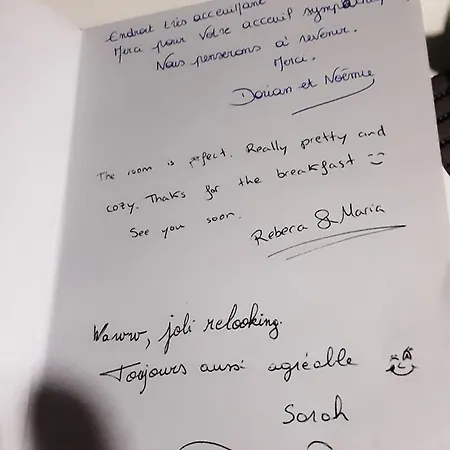 Endroit très acceuillant
Merci pour votre acceuil sympathique
Nous penserons à revenir.
Merci.
Dorian et Noëmie
The room is perfect. Really pretty and
cozy. Thaks for the breakfast
See you soon.
Rebeca & Maria
Wawww, joli relooking.
Toujours aussi agréable
Sarah